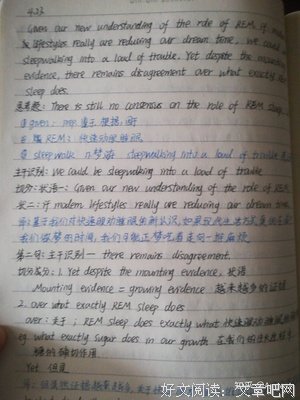 4.23
Given our new understanding of the role of REM, if modern
lifestyles really are reducing our dream time, we could be
sleepwalking into a load of trouble. Yet despite the mounting
evidence, there remains disagreement over what exactly REM
sleep does.
: There is still no consensus on the role of REM sleep
① given: prep. 鉴于 根据
② REM: 快速动眼睡眠
③ sleepwalk n.梦游 sleepwalking into a load of trouble
主干识别: We could be sleepwalking into a load of trouble
切分: 状语一: Given our new understanding of the role of REM
状二: if modern lifestyles really are reducing our dream time.
译: 基于我们对快速眼动睡眠的新认识, 如果现代生活
我们做梦的时间, 我们可能正梦游着走向一堆麻烦
第二句: 主干识别 — there remains disagreement.
切分成分: 1. Yet despite the mounting evidence, 状语
Mounting evidence = growing evidence 越来越多的证据
2. over what exactly REM sleep does
over: 关于; REM sleep does exactly what
eg. what exactly sugar does in our growth 在我们的
糖的确切作用
Yet 但是
译: 但是
好文阅读: 文章吧网